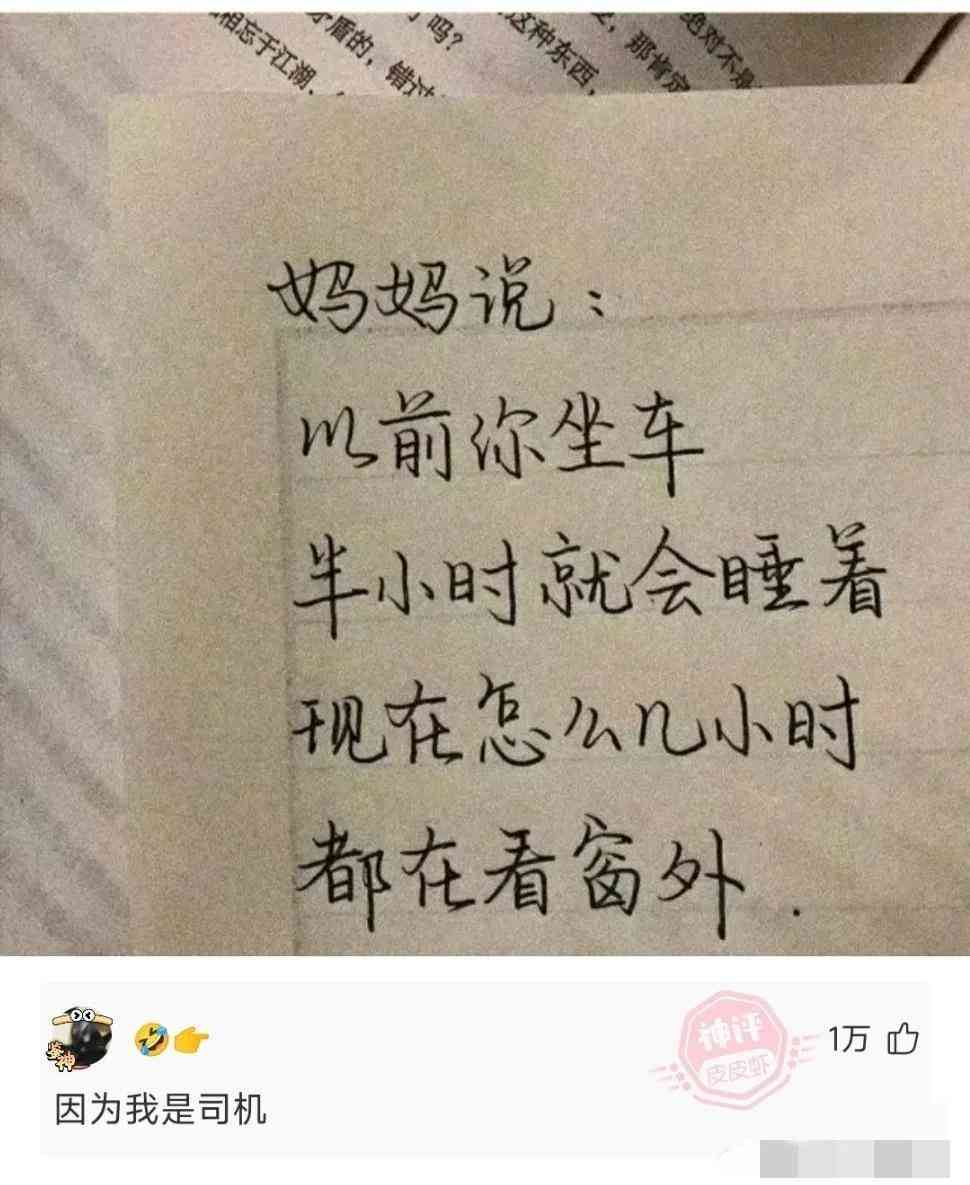 相忘于江湖,
矛盾的,错过
吗?
这种东西,
,那肯定
绝对不是
妈妈说:
以前你坐车
半小时就会睡着
现在怎么几小时
都在看窗外.
鉴神
神评
皮皮虾
1万
因为我是司机